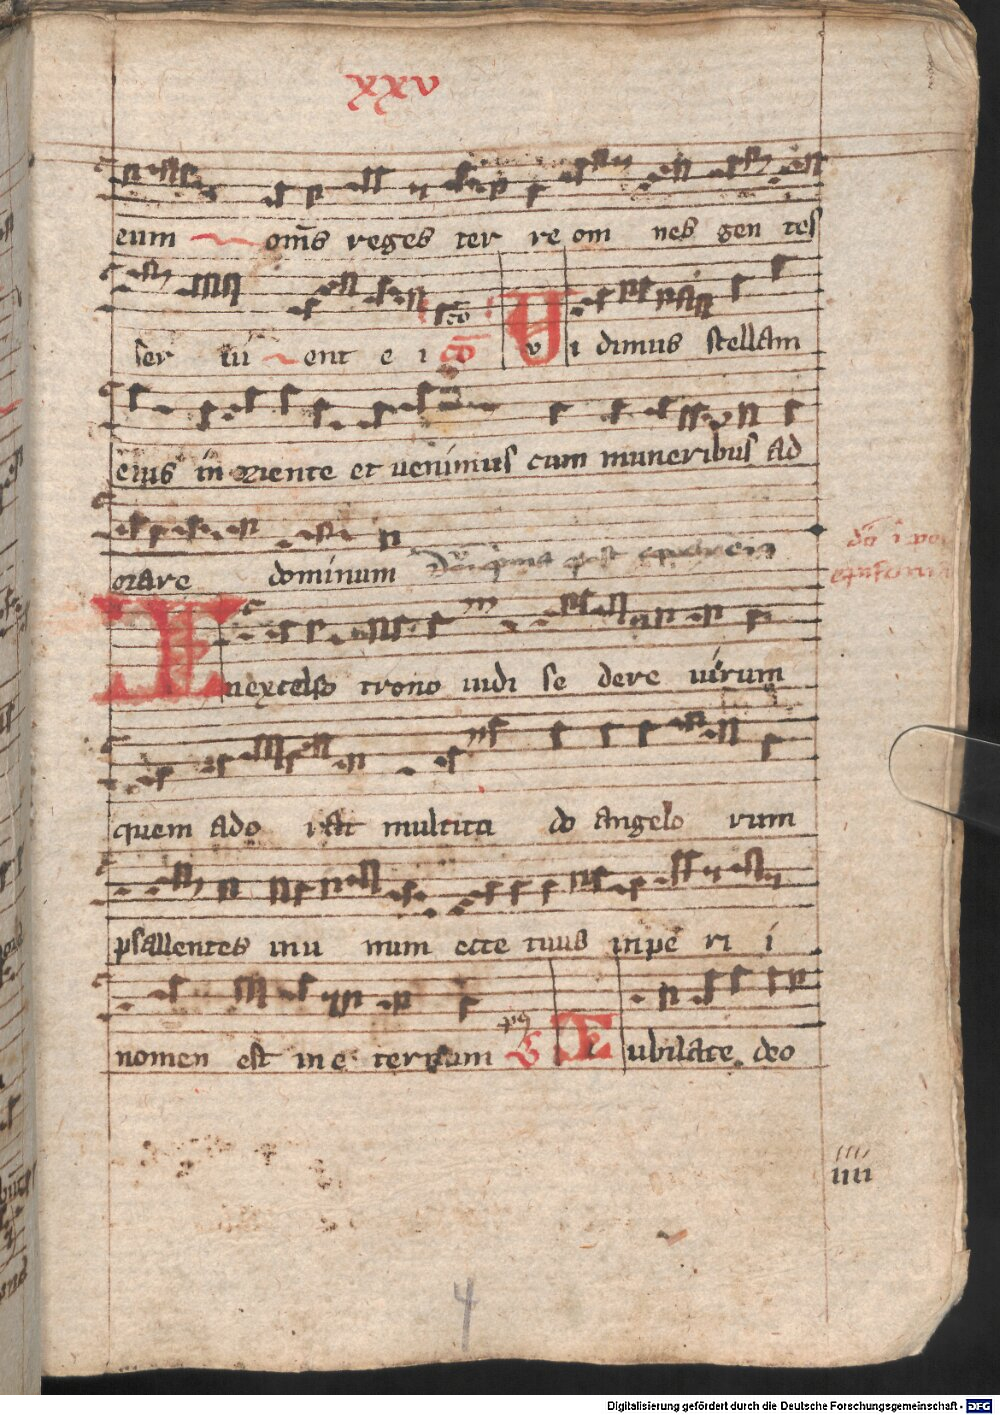 xxv
eum om̄s reges ter re om nes gen tes
ser ui ent e i cō v i dimus stellam
eius in oriente et uenimus cum muneribus ad
orare dominum
In excelso trono uidi se dere uirum
quem ado rat multitu do angelo rum
psallentes in u num ecce cuius inpe ri i
nomen est in e ternum I ubilate deo
iiii
4
Digitalisierung gefördert durch die Deutsche Forschungsgemeinschaft - DFG